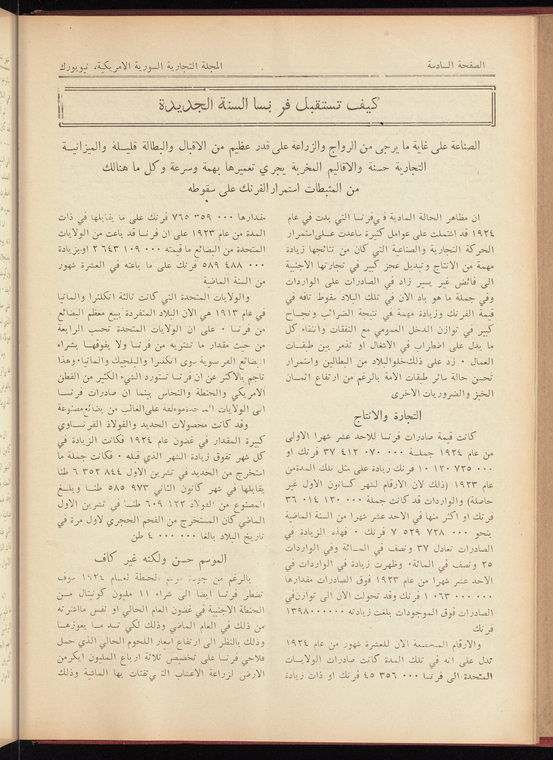 الصفحة السادسة
المجلة التجارية السورية الامريكية، نيويورك
كيف تستقبل فرنسا السنة الجديدة
الصناعة على غاية ما يرجى من الرواج والزراعة على قدر عظيم من الاقبال والبطالة قليلة والميزانية
التجارية حسنة والاقاليم المخربة يجري تعميرها بهمة وسرعة وكل ما هنالك
من المثبطات استمرار الفرنك على سقوطه
ان مظاهر الحالة المادية في فرنسا التي بدت في عام
١٩٢٤ قد اشتملت على عوامل كثيرة ساعدت على استمرار
الحركة التجارية والصناعية التي كان من نتائجها زيادة
مهمة من الانتاج وتبديل عجز كبير في تجارتها الاجنبية
الى فائض غير يسير زاد في الصادرات على الواردات
وفي جملة ما هو باد الان في تلك البلاد سقوط تافه في
قيمة الفرنك وزيادة مهمة في نتيجة الضرائب ونجاح
كبير في توازن الدخل العمومي مع النفقات وانتفاء كل
ما يدل على اضطراب في الاشغال او تذمر بين طبقات
العمال ٠ زد على ذلك خلو البلاد من البطالين واستمرار
تحسن حالة سائر طبقات الامة بالرغم من ارتفاع اثمان
الخبز والضروريات الاخرى
التجارة والانتاج
كانت قيمة صادرات فرنسا للاحد عشر شهرا الاولى
من عام ١٩٢٤ جملة ٠٠٠ ٠٧٠ ٤١٢ ٣٧ فرنك او
٠٠٠ ٧٣٥ ١٢٠ ١٠ فرنك زيادة على مثل تلك المدة من
عام ١٩٢٣ (ذلك لان الارقام لشهر كانون الاول غير
حاصلة) والواردات قد كانت جملة ٠٠٠ ١٢٠ ٠١٤ ٣٦
فرنك او اكثر منها في الاحد عشر شهرا من السنة الماضية
بنحو ٠٠٠ ٧٢٨ ٥٢٩ ٧ فرنك ٠ فهذه الزيادة في
الصادرات تعادل ٣٧ ونصف في المائة وفي الواردات
٢٥ ونصف في المائة٠ وظهرت زيادة في الواردات في
الاحد عشر شهرا من عام ١٩٢٣ فوق الصادرات مقدارها
٠٠٠ ٠٠٠ ٠٦٣ ١ فرنك وقد تحولت الان الى توازن في
الصادرات فوق الموجودات بلغت زيادته ١٣٩٨٠٠٠٠٠٠
فرنك
والارقام المجتمعة الان للعشرة شهور من عام ١٩٢٤
تدل على انه في تلك المدة كانت صادرات الولايات
المتحدة الى فرنسا ٠٠٠ ٣٥٦ ٤٥ فرنك او ذات زيادة
مقدارها ٠٠٠ ٣٥٩ ٧٦٥ فرنك على ما يقابلها في ذات
المدة من عام ١٩٢٣ على ان فرنسا قد باعت من الولايات
المتحدة من البضائع ما قيمته ٠٠٠ ١٠٩ ٦٤٣ ٢ او بزيادة
٠٠٠ ٤٨٨ ٥٨٩ فرنك على ما باعته في العشرة شهور
من السنة الماضية
والولايات المتحدة التي كانت ثالثة انكلترا والمانيا
في عام ١٩١٣ هي الان البلاد المنفردة ببيع معظم البضائع
من فرنسا ٠ على ان الولايات المتحدة تحسب الرابعة
من حيث مقدار ما تشتريه من فرنسا ولا يفوقها بشراء
البضائع الفرنسوية سوى انكلترا والبلجيك والمانيا٠ وهذا
ناجم بالاكثر عن ان فرنسا تستورد الشيء الكثير من القطن
الاميركي والحنطة والنحاس بينما ان صادرات فرنسا
الى الولايات المتحدة مؤلفة على الغالب من بضائع مصنوعة
وقد كانت محصولات الحديد والفولاذ الفرنساوي
كبيرة المقدار في غضون عام ١٩٢٤ فكانت الزيادة في
كل شهر تفوق زيادة الشهر الذي قبله ٠ فكانت جملة ما
استخرج من الحديد في تشرين الاول ٨٤٤ ٣٥٢ ٦ طنا
يقابلها في شهر كانون الثاني ٩٧٣ ٥٨٥ طنا وبلغ
المصنوع من الفولاذ ١٢٢ ٦٠٩ طنا في تشرين الاول
الماضي كان المستخرج من الفحم الحجري لاول مرة في
تاريخ البلاد بالغا ٠٠٠ ٠٠٠ ٤ طن
الموسم حسن ولكنه غير كاف
بالرغم من جودة موسم الحنطة لعام ١٩٢٤ سوف
تضطر فرنسا ايضا الى شراء ١١ مليون كونيتال من
الحنطة الاجنبية في غضون العام الحالي او نفس ما اشترته
من ذلك في العام الماضي وذلك لكي تسد ما يعوزها
وذلك بالنظر الى ارتفاع اسعار اللحوم الحالي الذي حمل
فلاحي فرنسا على تخصيص ثلاثة ارباع المليون ايكر من
الارض لزراعة الاعشاب التي تقتات بها الماشية وذلك